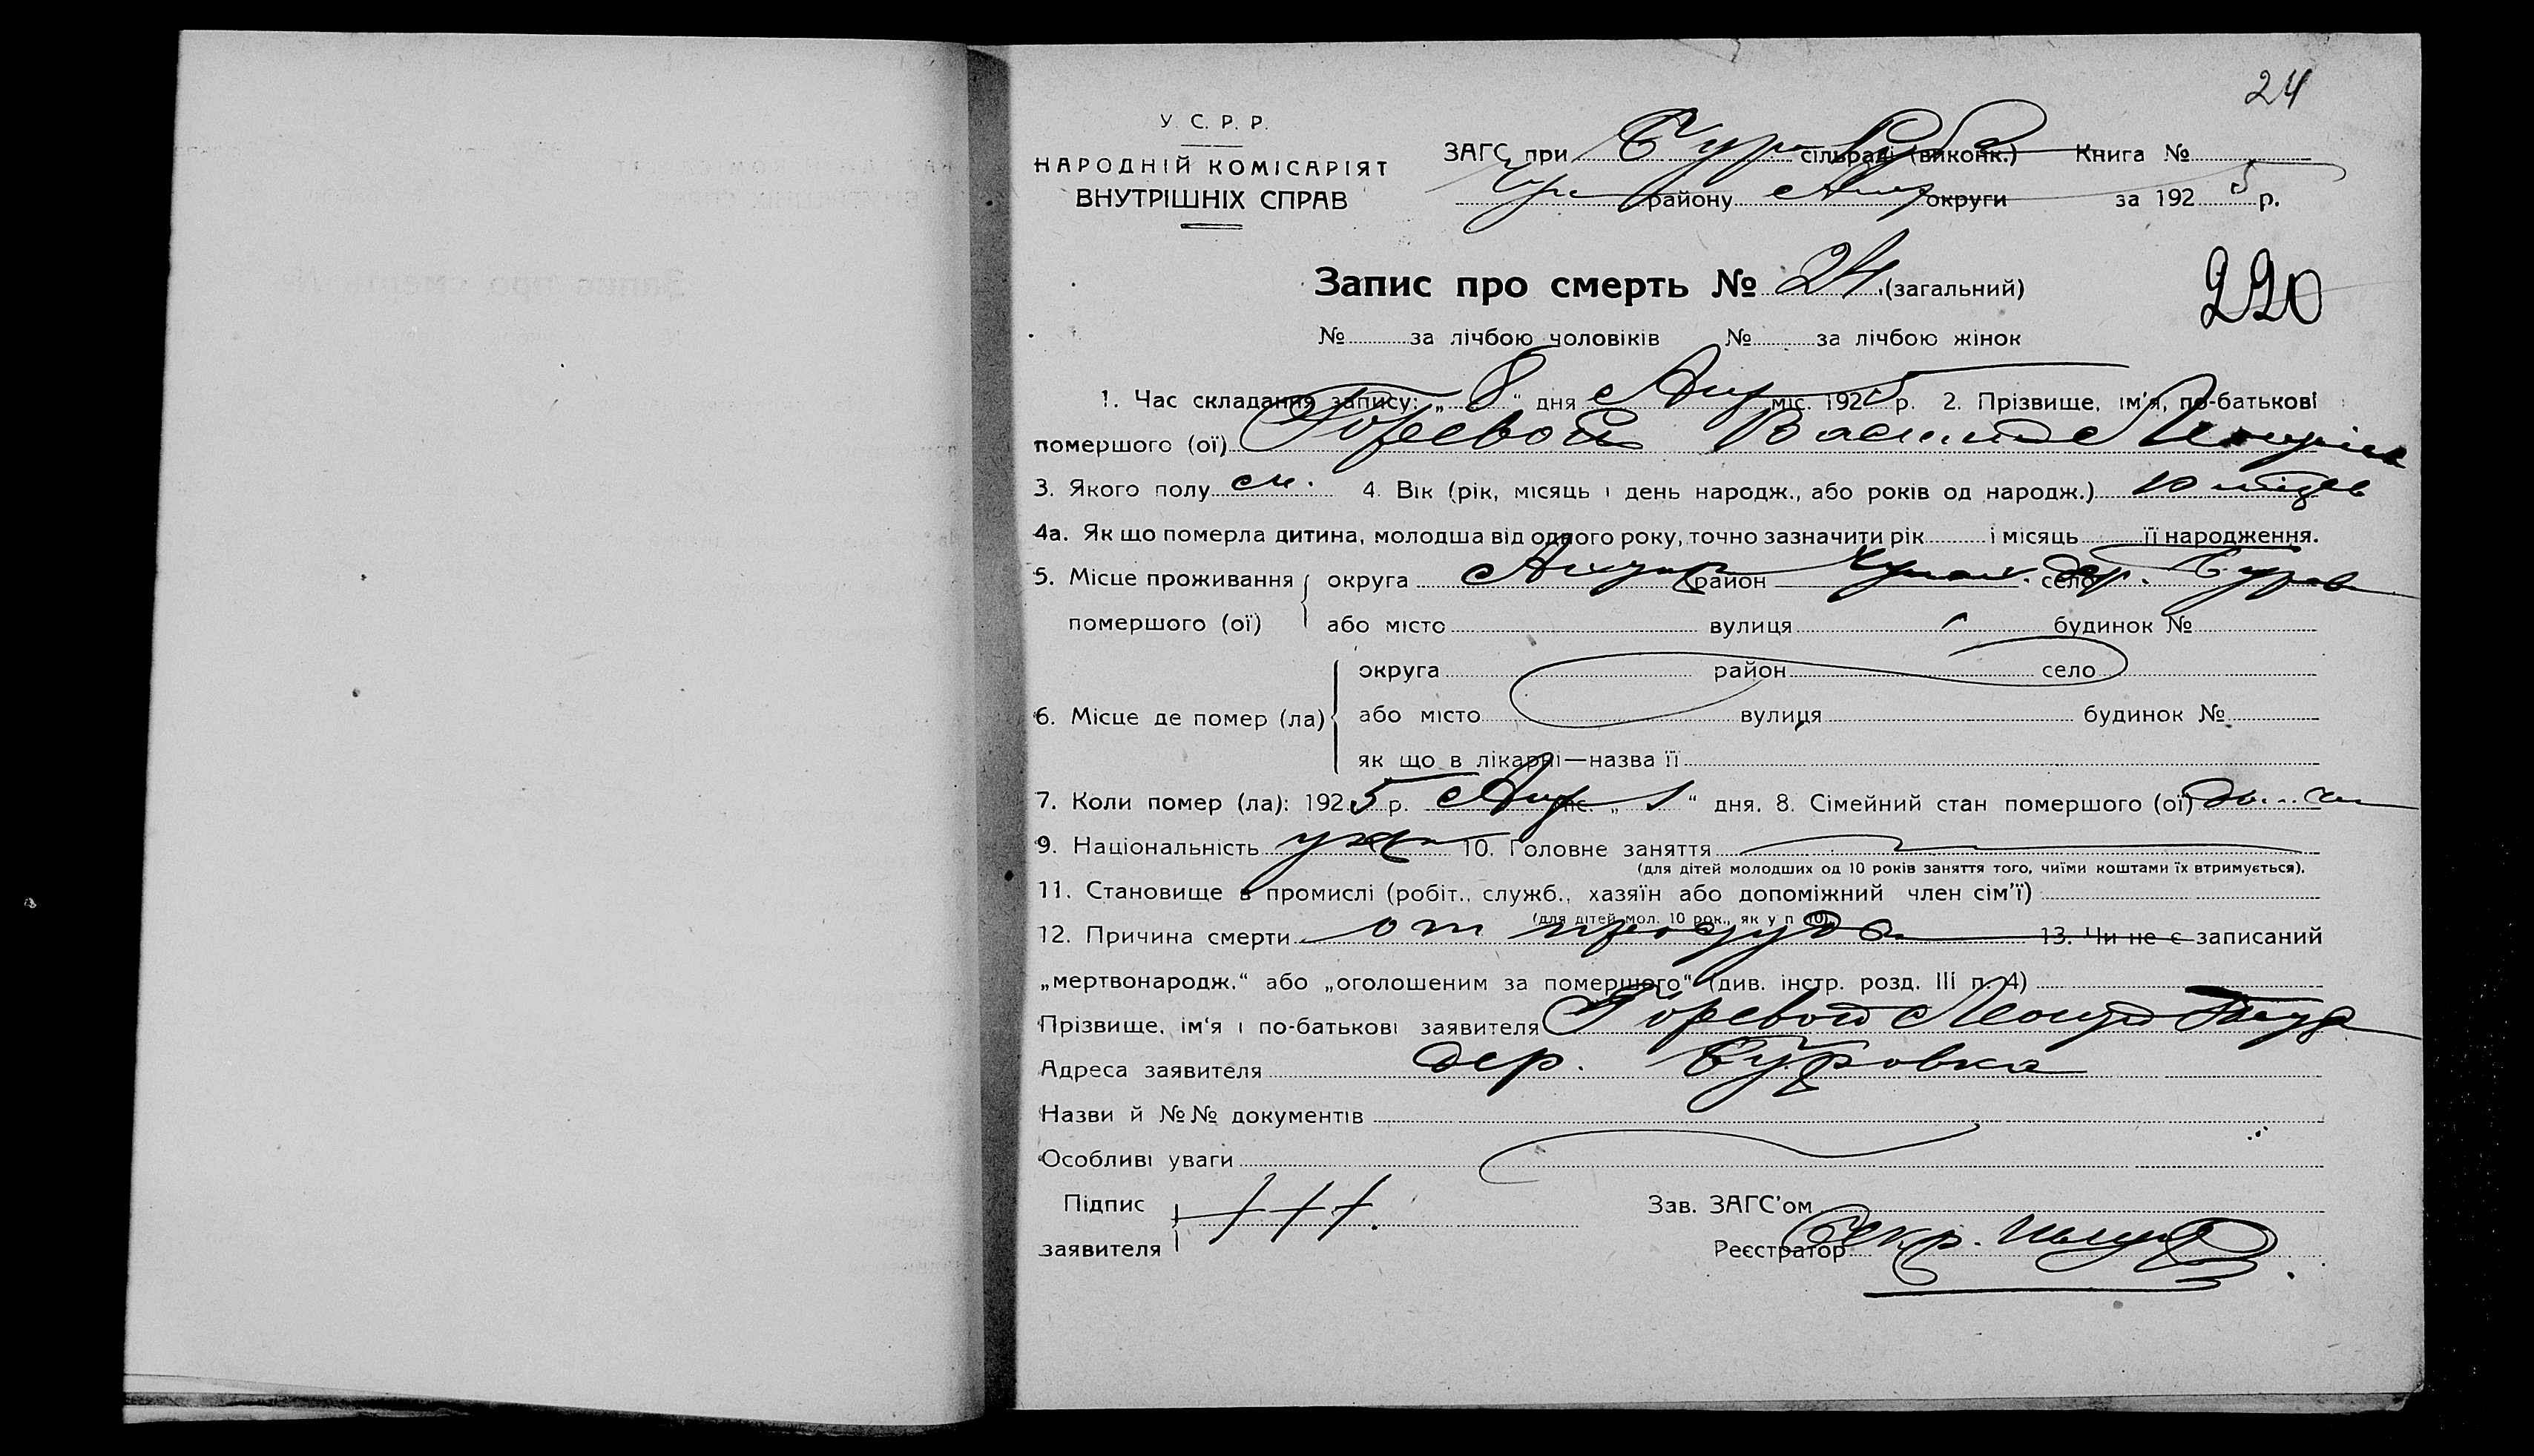 24
У. С. Р. Р.
НАРОДНІЙ КОМІСАРІЯТ
ВНУТРІШНІХ СПРАВ
ЗАГС при сільраді (виконк.) Книга №
району округи за 1925 р.
Запис про смерть № 24 (загальний)
220
№ за лічбою чоловіків № за лічбою жінок
1. Час складання запису: „ 8 “ дня Апр міс. 1925 р. 2. Прізвище, ім'я, по-батькові
помершого (ої) Горевой
3. Якого полу м. 4. Вік (рік, місяць і день народж., або років од народж.) 10
4а. Як що померла дитина, молодша від одного року, точно зазначити рік і місяць її народження.
5. Місце проживання округа район село дер.
помершого (ої) або місто вулиця будинок №
округа район село
6. Місце де помер (ла) або місто вулиця будинок №
як що в лікарні—назва її
7. Коли помер (ла): 1925 р. Апр міс. „ 1 “ дня. 8. Сімейний стан помершого (ої)
9. Національність укр 10. Головне заняття
(для дітей молодших од 10 років заняття того, чиїми коштами їх втримується).
11. Становище в промислі (робіт., служб., хазяїн або допоміжний член сім'ї)
(для дітей мол. 10 рок., як у п 10).
12. Причина смерти от простуда 13. Чи не є записаний
„мертвонародж.“ або „оголошеним за помершого“ (див. інстр. розд. III п. 4)
Прізвище, ім'я і по-батькові заявителя Горевой
Адреса заявителя дер. Буровка
Назви й №№ документів
Особливі уваги
Підпис
заявителя +++.
Зав. ЗАГС'ом
Реєстратор Секр.